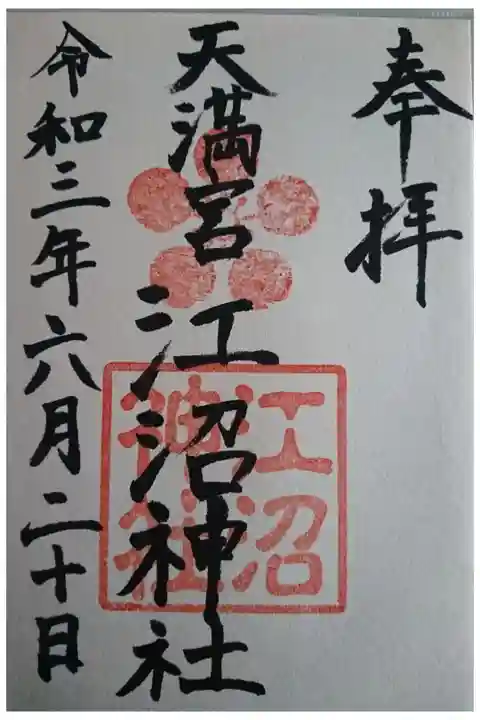 奉拝
天満宮 江沼神社
江沼神社
令和三年六月二十日